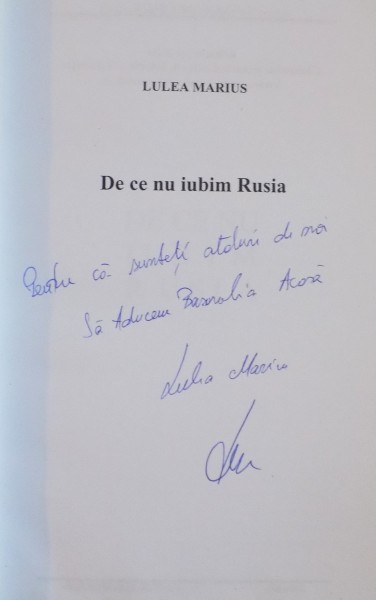 LULEA MARIUS
De ce nu iubim Rusia
Pentru că sunteți alături de noi
Să Aducem Basarabia Acasă
Lulea Marius